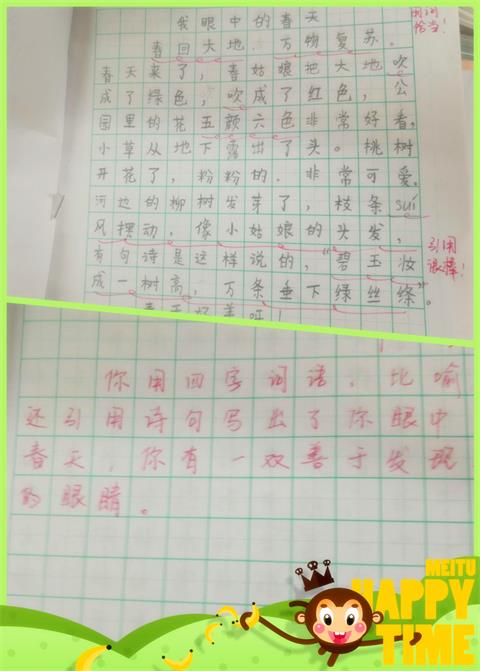 我眼中的春天
用词
恰当！
春回大地，万物复苏。
春天来了，春姑娘把大地吹
成了绿色，吹成了红色，公
园里的花五颜六色非常好看，
小草从地下露出了头。桃树
开花了，粉粉的，非常可爱。
河边的柳树发芽了，枝条suí
风摆动，像小姑娘的头发，
引用
很棒！
有句诗是这样说的，“碧玉妆
成一树高，万条垂下绿丝绦”。
春天好美呀！
你用四字词语，比喻
还引用诗句写出了你眼中
春天，你有一双善于发现
的眼睛。
MEITU
HAPPY
TIME